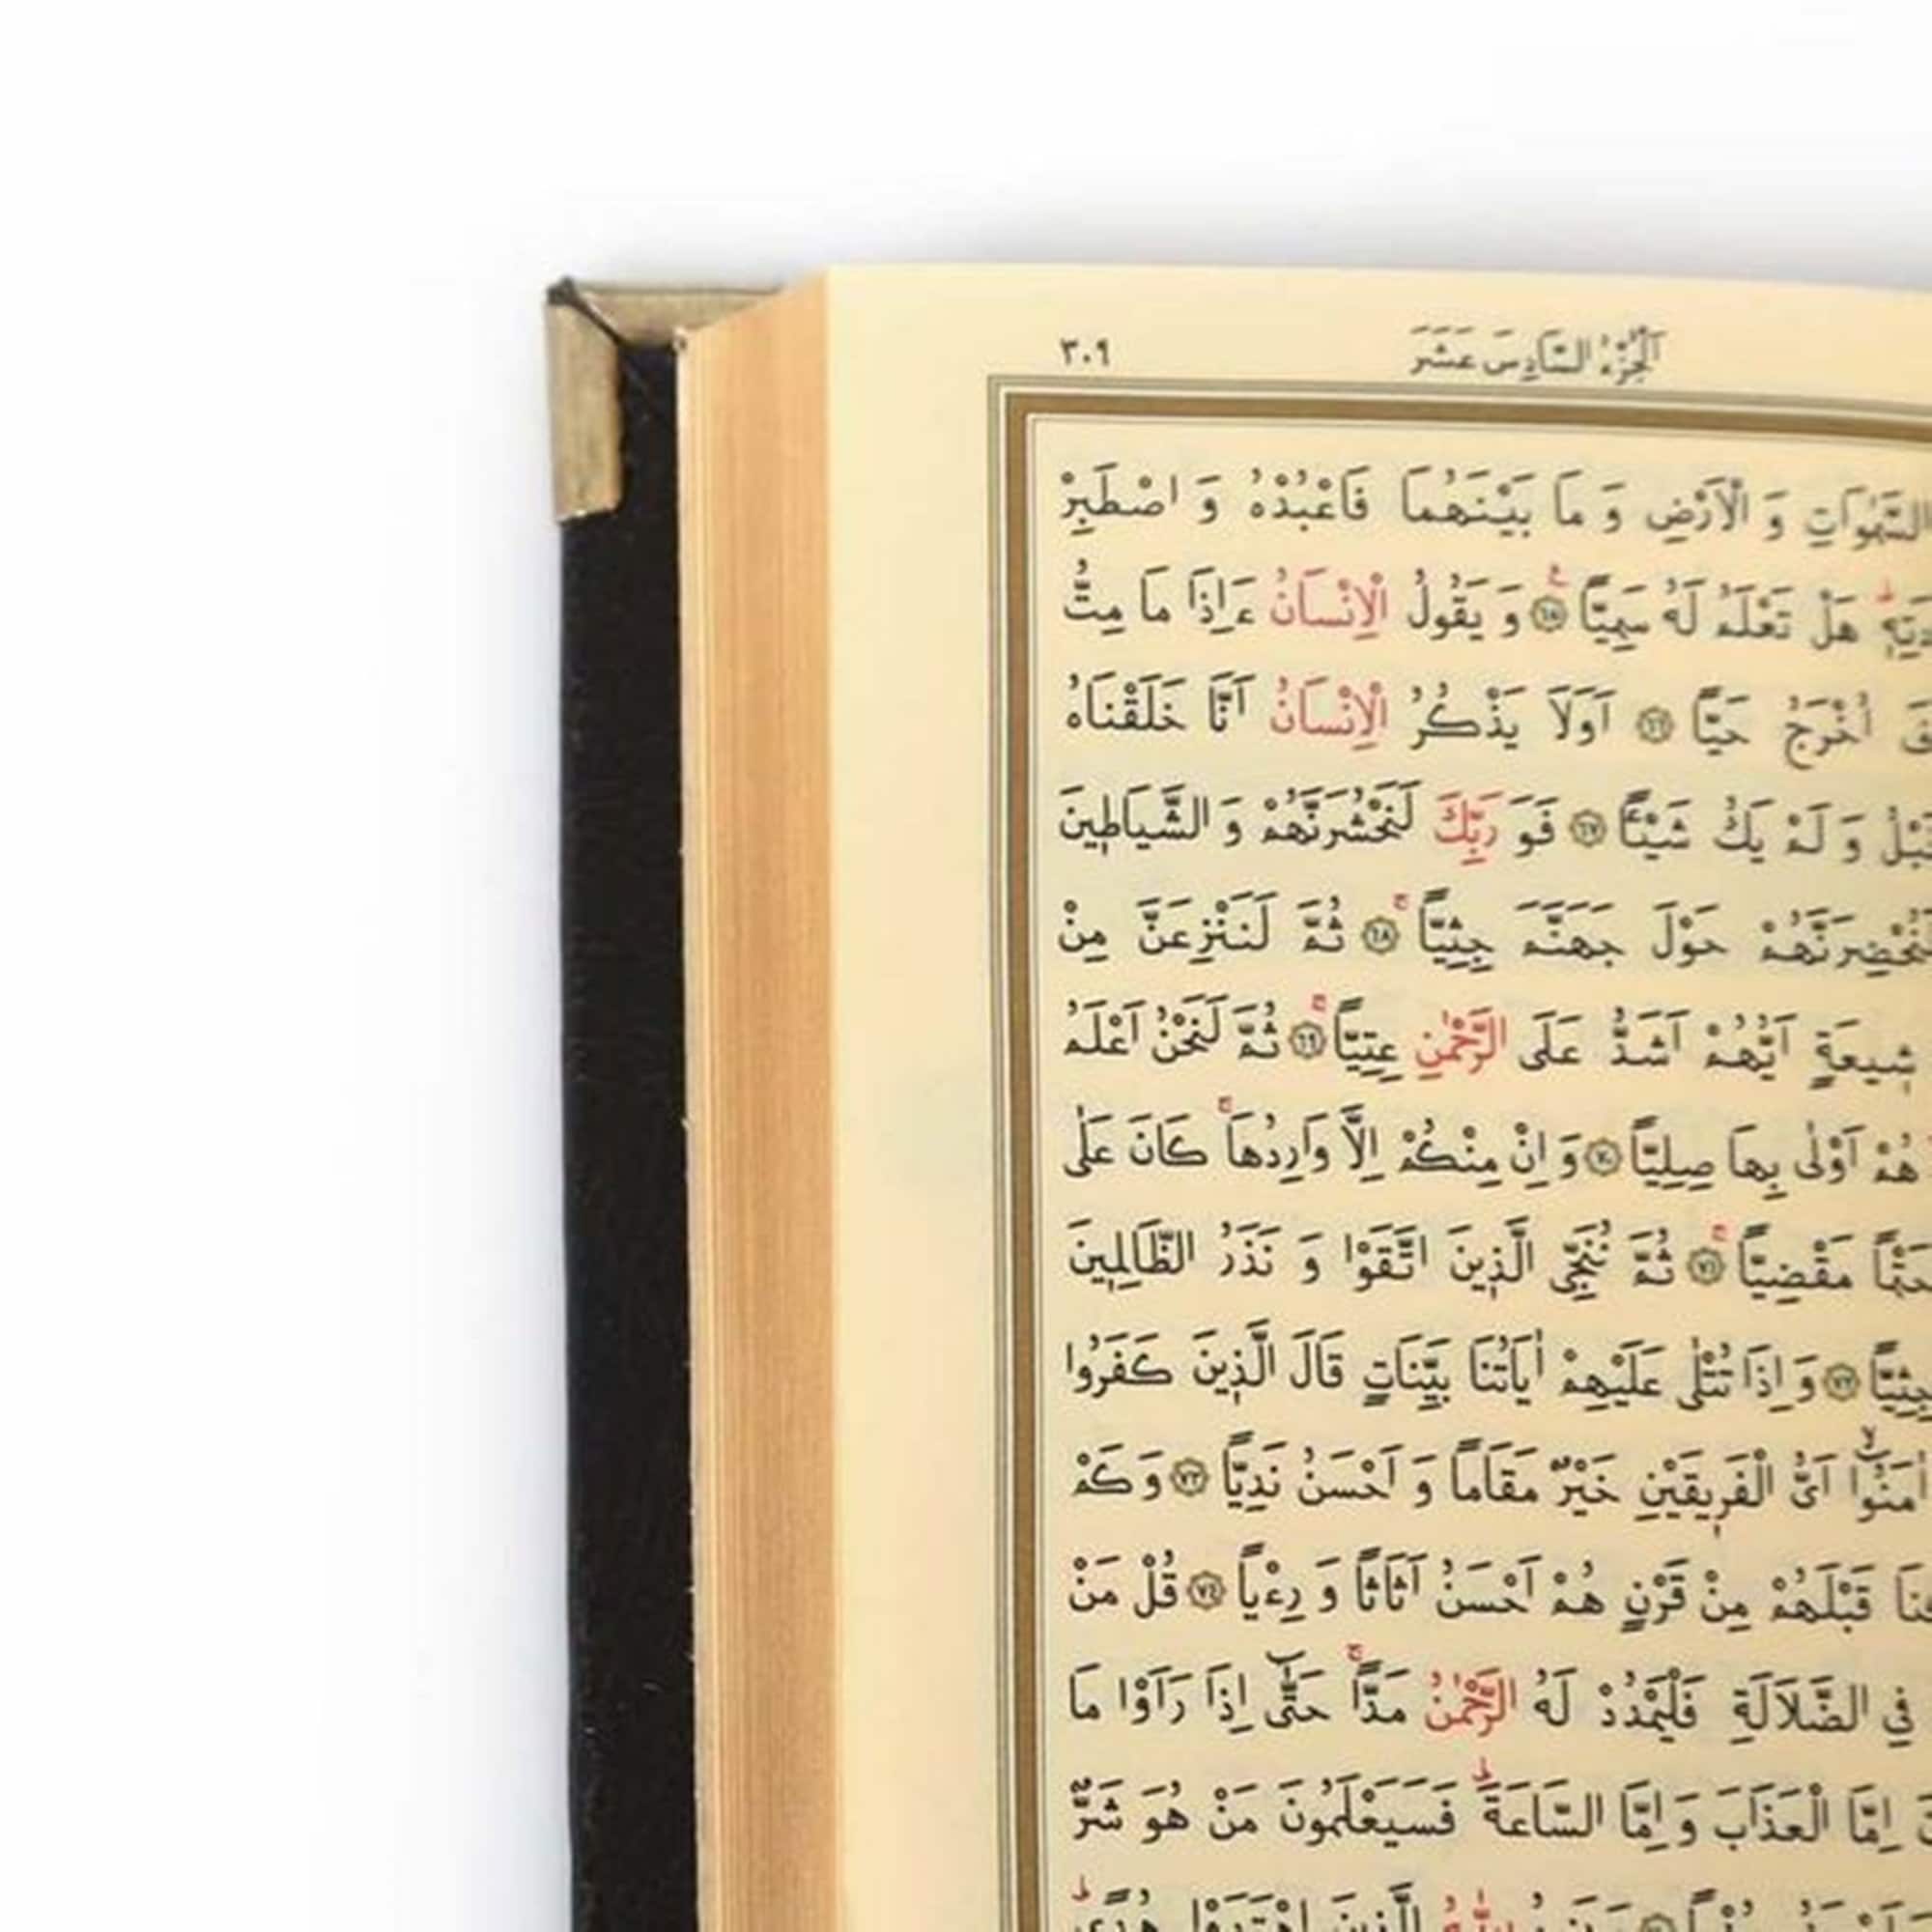 اَلْجُزْءُ السَّادِسَ عَشَرَ
٣٠٩
السَّمٰوَاتِ وَ الْاَرْضِ وَ مَا بَيْنَهُمَا فَاعْبُدْهُ وَ اصْطَبِرْ
هَلْ تَعْلَمُ لَهُ سَمِيًّا ۝٦٥ وَ يَقُولُ الْاِنْسَانُ ءَاِذَا مَا مِتُّ
اُخْرَجُ حَيًّا ۝٦٦ اَوَلَا يَذْكُرُ الْاِنْسَانُ اَنَّا خَلَقْنَاهُ
وَ لَمْ يَكُ شَيْئًا ۝٦٧ فَوَ رَبِّكَ لَنَحْشُرَنَّهُمْ وَ الشَّيَاطٖينَ
حَوْلَ جَهَنَّمَ جِثِيًّا ۝٦٨ ثُمَّ لَنَنْزِعَنَّ مِنْ
شٖيعَةٍ اَيُّهُمْ اَشَدُّ عَلَى الرَّحْمٰنِ عِتِيًّا ۝٦٩ ثُمَّ لَنَحْنُ اَعْلَمُ
هُمْ اَوْلٰى بِهَا صِلِيًّا ۝٧٠ وَ اِنْ مِنْكُمْ اِلَّا وَارِدُهَا كَانَ عَلٰى
مَقْضِيًّا ۝٧١ ثُمَّ نُنَجِّى الَّذٖينَ اتَّقَوْا وَ نَذَرُ الظَّالِمٖينَ
۝٧٢ وَ اِذَا تُتْلٰى عَلَيْهِمْ اٰيَاتُنَا بَيِّنَاتٍ قَالَ الَّذٖينَ كَفَرُوا
اٰمَنُوا اَىُّ الْفَرٖيقَيْنِ خَيْرٌ مَقَامًا وَ اَحْسَنُ نَدِيًّا ۝٧٣ وَ كَمْ
قَبْلَهُمْ مِنْ قَرْنٍ هُمْ اَحْسَنُ اَثَاثًا وَ رِءْيًا ۝٧٤ قُلْ مَنْ
فِى الضَّلَالَةِ فَلْيَمْدُدْ لَهُ الرَّحْمٰنُ مَدًّا حَتّٰى اِذَا رَاَوْا مَا
اِمَّا الْعَذَابَ وَ اِمَّا السَّاعَةَ فَسَيَعْلَمُونَ مَنْ هُوَ شَرٌّ